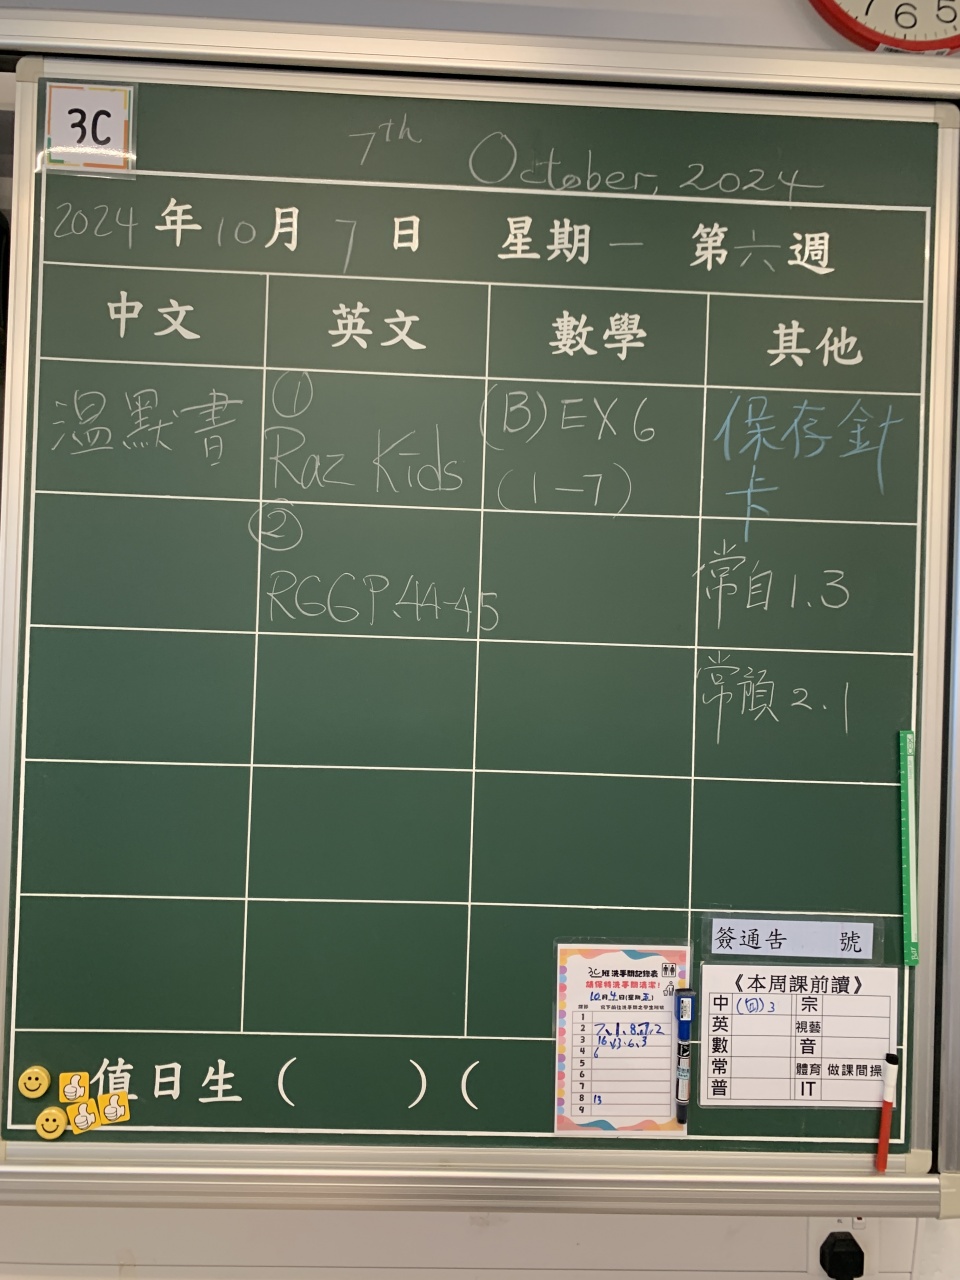 7 6 5
3C
7th October, 2024
2024年10月7日 星期一 第六週
中文 英文 數學 其他
溫默書
①
Raz Kids
②
RGGP.44-45
(B) EX6
(1-7)
保存針
卡
常自1.3
常預2.1
簽通告 號
3C班洗手間記錄表
請保持洗手間清潔!
10月4日(星期五)
1
2 7、1、8、7、2
3
4 6
5
6
7
8 13
9
《本周課前讀》
中 (四)3 宗
英 視藝
數 音
常 體育 做課間操
普 IT
值日生 ( ) (